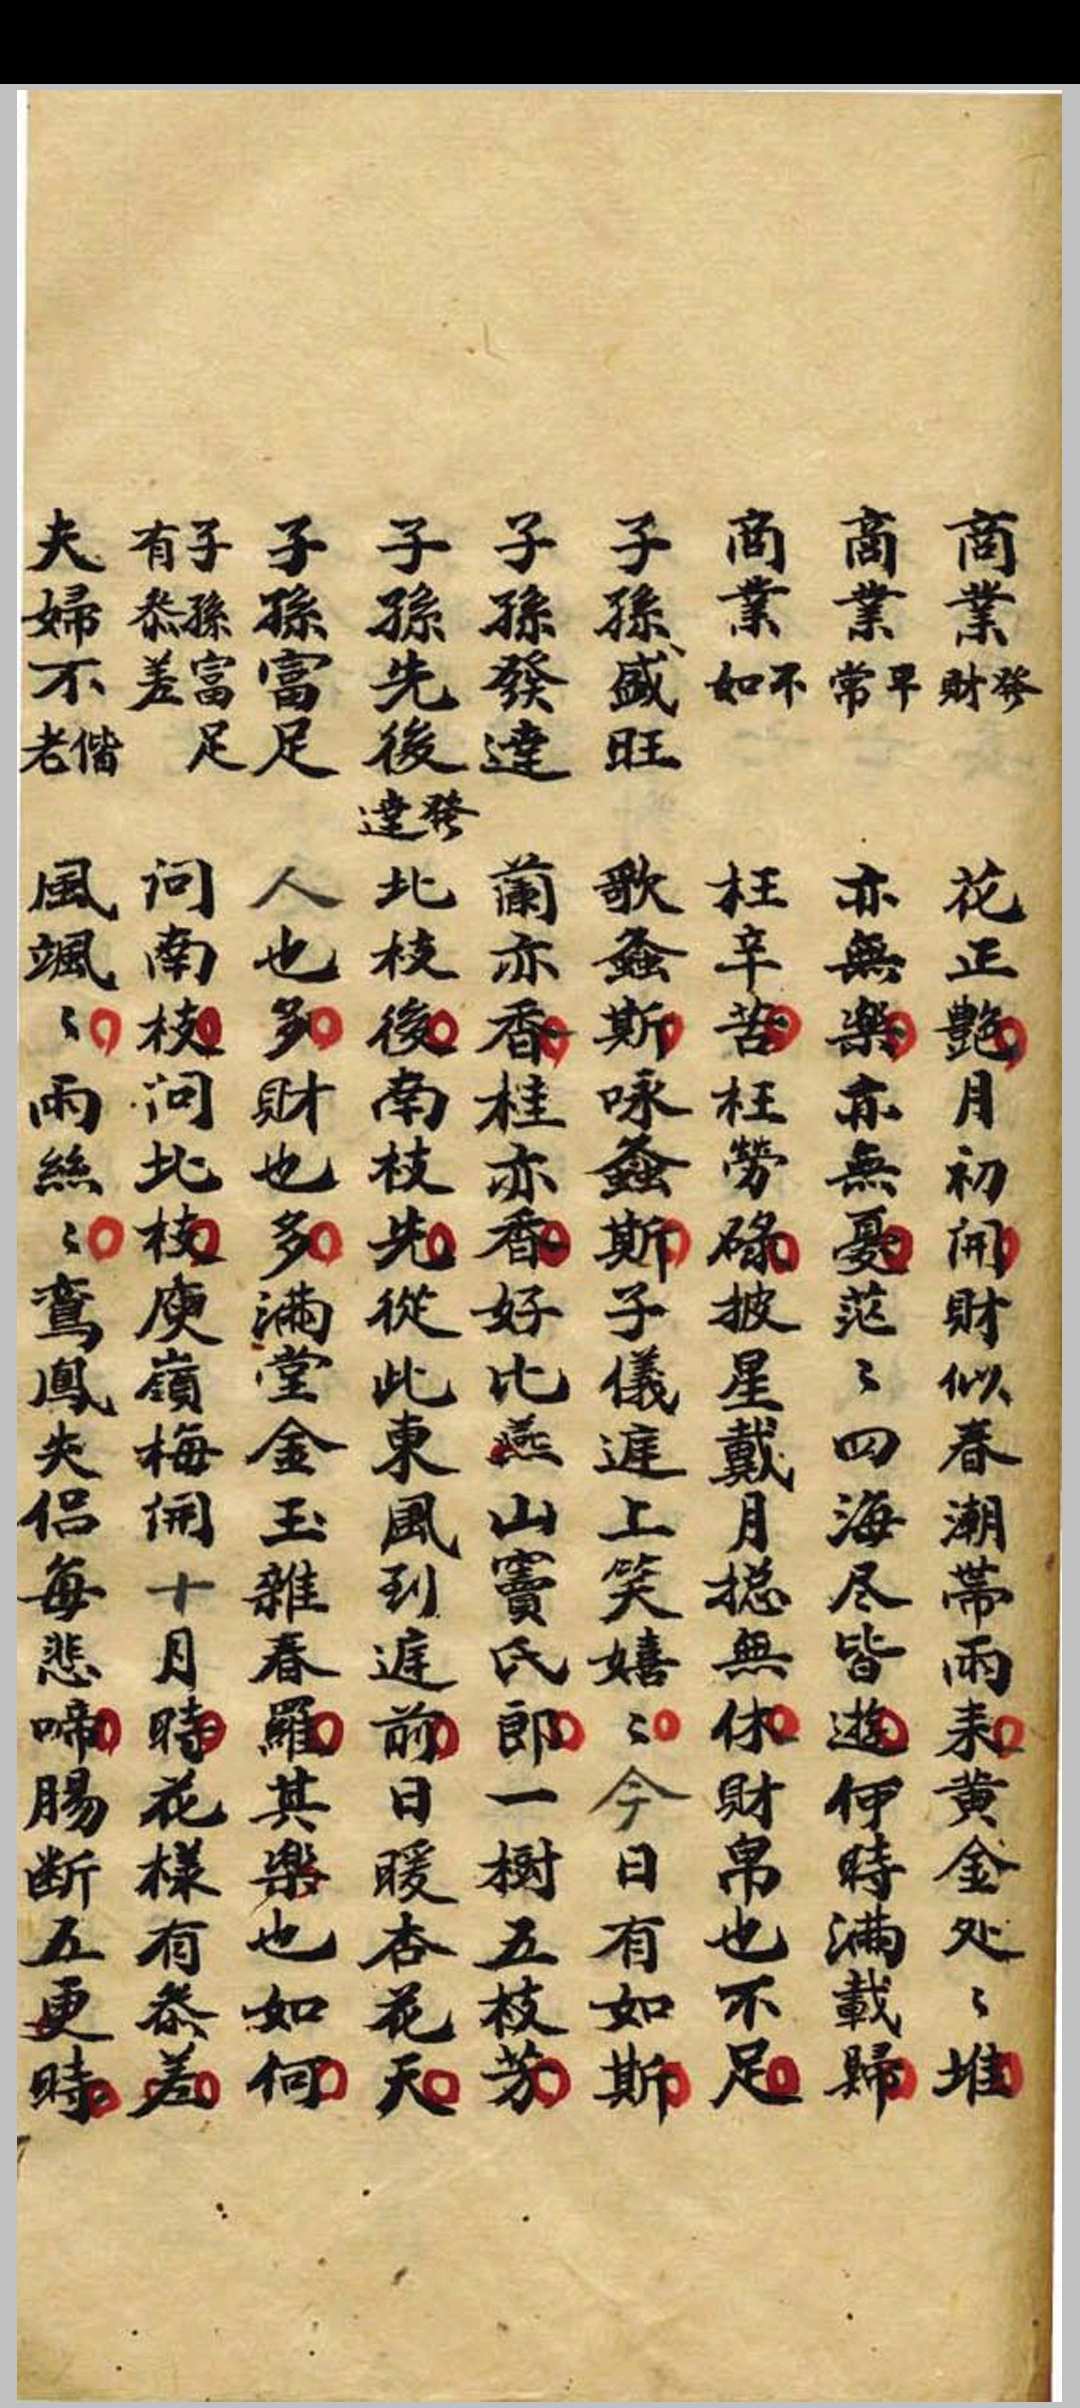 商業發財 花正艷月初開財似春潮帶雨来黄金处〻堆
商業早常 亦無樂亦無憂茫〻四海尽皆遊何時滿載歸
商業不如 枉辛苦枉勞碌披星戴月搃無休財帛也不足
子孫盛旺 歌螽斯咏螽斯子儀庭上笑嬉〻今日有如斯
子孫發達 蘭亦香桂亦香好比燕山竇氏郎一樹五枝芳
子孫先後發達 北枝後南枝先從此東風到庭前日暖杏花天
子孫富足 人也多財也多滿堂金玉雜春羅其樂也如何
子孫富足有叅差 问南枝问北枝庾嶺梅開十月時花樣有叅差
夫婦不偕老 風颯〻雨絲〻鸾鳳失侣每悲啼腸断五更時